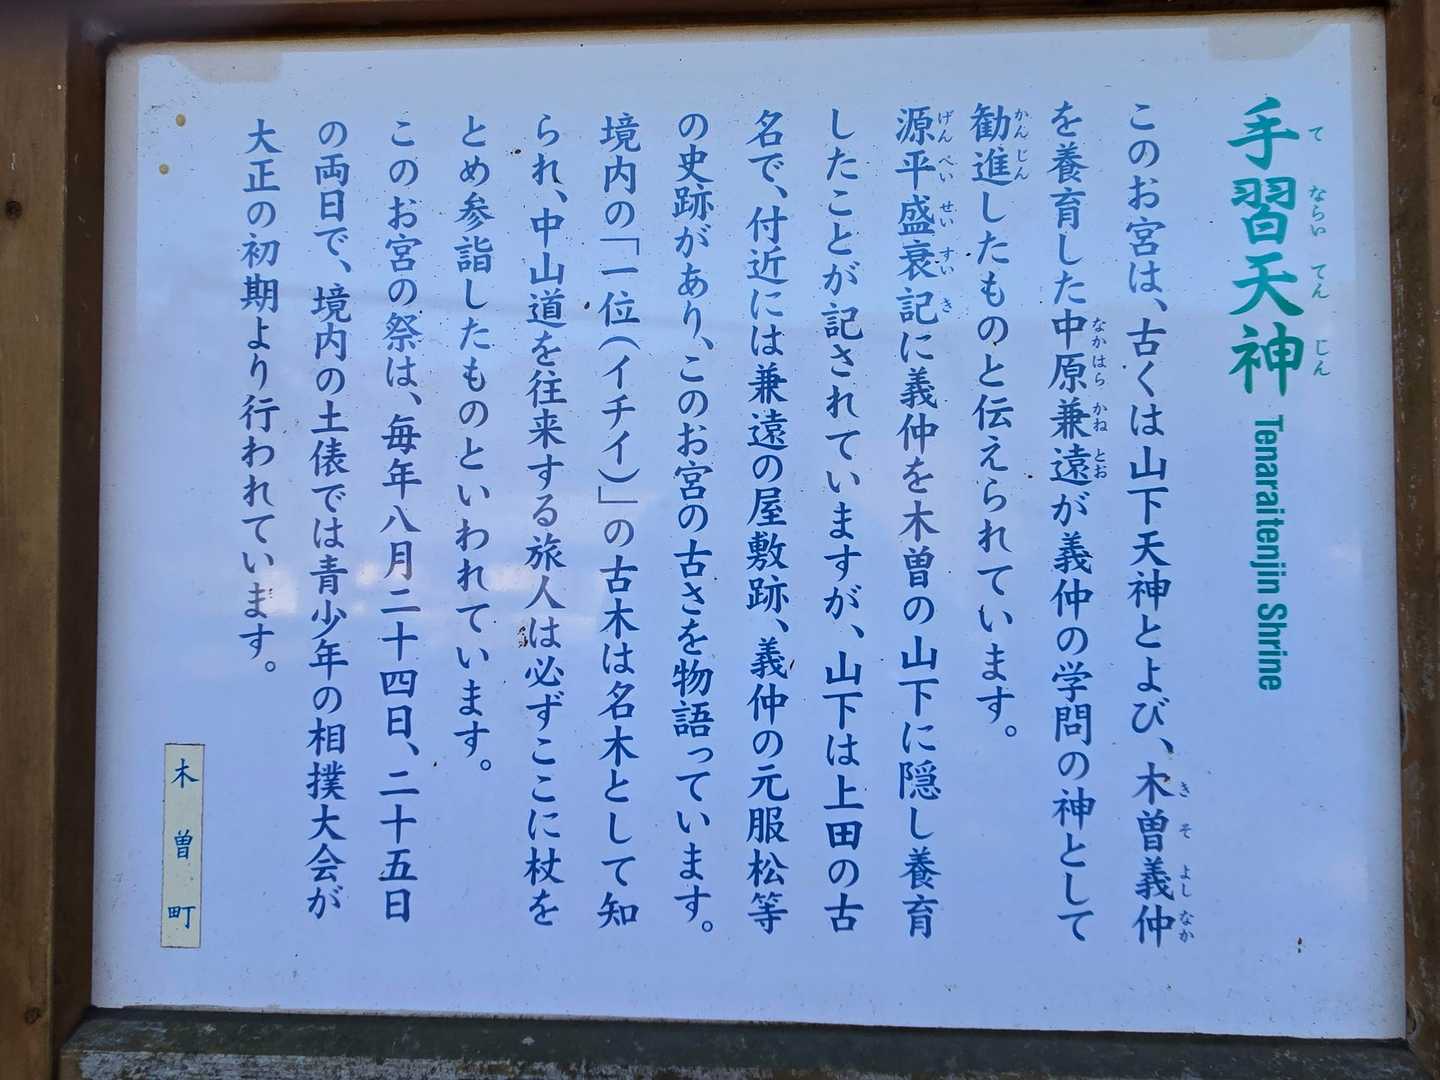 手習天神 Tenaraitenjin Shrine
て ならい てん じん
このお宮は、古くは山下天神とよび、木曽義仲
き そ よし なか
を養育した中原兼遠が義仲の学問の神として
なか はら かね とお
勧進したものと伝えられています。
かん じん
源平盛衰記に義仲を木曽の山下に隠し養育
げん ぺい せい すい き
したことが記されていますが、山下は上田の古
名で、付近には兼遠の屋敷跡、義仲の元服松等
の史跡があり、このお宮の古さを物語っています。
境内の「一位(イチイ)」の古木は名木として知
られ、中山道を往来する旅人は必ずここに杖を
とめ参詣したものといわれています。
このお宮の祭は、毎年八月二十四日、二十五日
の両日で、境内の土俵では青少年の相撲大会が
大正の初期より行われています。
木曽町